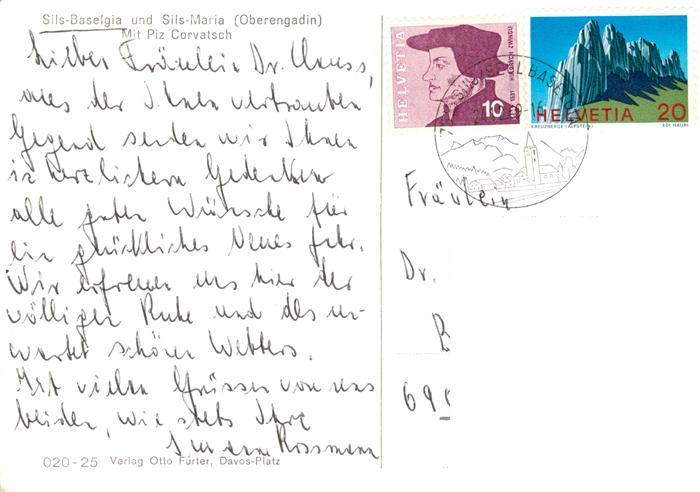 Sils-Baselgia und Sils-Maria (Oberengadin)
Mit Piz Corvatsch
Liebes Fräulein Dr. Clauss,
aus der Ihnen vertrauten
Gegend senden wir Ihnen
in herzlichem Gedenken
alle guten Wünsche für
ein glückliches Neues Jahr.
Wir erfreuen uns hier der
völligen Ruhe und des un-
wartet schönen Wetters.
Mit vielen Grüssen von uns
beiden, wie stets Ihre
Rossmann
020-25 Verlag Otto Furter, Davos-Platz
HELVETIA
10
HULDRYCH ZWINGLI
HELVETIA 20
KREUZBERGE (ALPSTEIN) EDI HAURI
Fräulein
Dr.
B
69